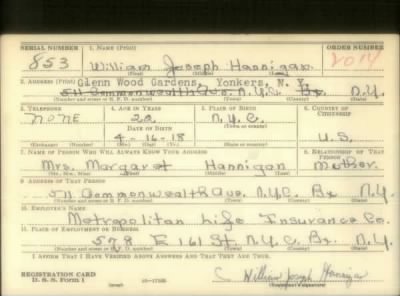 SERIAL NUMBER 1. NAME (Print) ORDER NUMBER
853 William Joseph Hannigan 2014
(First) (Middle) (Last)
2. ADDRESS (Print) Glenn Wood Gardens, Yonkers, N. Y.
511 Commonwealth Ave. N.Y.C. Bx. N.Y.
(Number and street or R. F. D. number) (Town) (County) (State)
3. TELEPHONE 4. AGE IN YEARS 5. PLACE OF BIRTH 6. COUNTRY OF CITIZENSHIP
none 22 N.Y.C.
DATE OF BIRTH (Town or county)
4-16-18 U.S.
(Mo.) (Day) (Yr.) (State or country)
7. NAME OF PERSON WHO WILL ALWAYS KNOW YOUR ADDRESS 8. RELATIONSHIP OF THAT PERSON
Mrs. Margaret Hannigan Mother
(Mr., Mrs., Miss) (First) (Middle) (Last)
9. ADDRESS OF THAT PERSON
511 Commonwealth Ave. N.Y.C. Bx. N.Y.
(Number and street or R. F. D. number) (Town) (County) (State)
10. EMPLOYER'S NAME
Metropolitan Life Insurance Co.
11. PLACE OF EMPLOYMENT OR BUSINESS
578 E 161 St. N.Y.C. Bx. N.Y.
(Number and street or R. F. D. number) (Town) (County) (State)
I AFFIRM THAT I HAVE VERIFIED ABOVE ANSWERS AND THAT THEY ARE TRUE.
REGISTRATION CARD
D. S. S. Form 1 William Joseph Hannigan
(Registrant's signature)